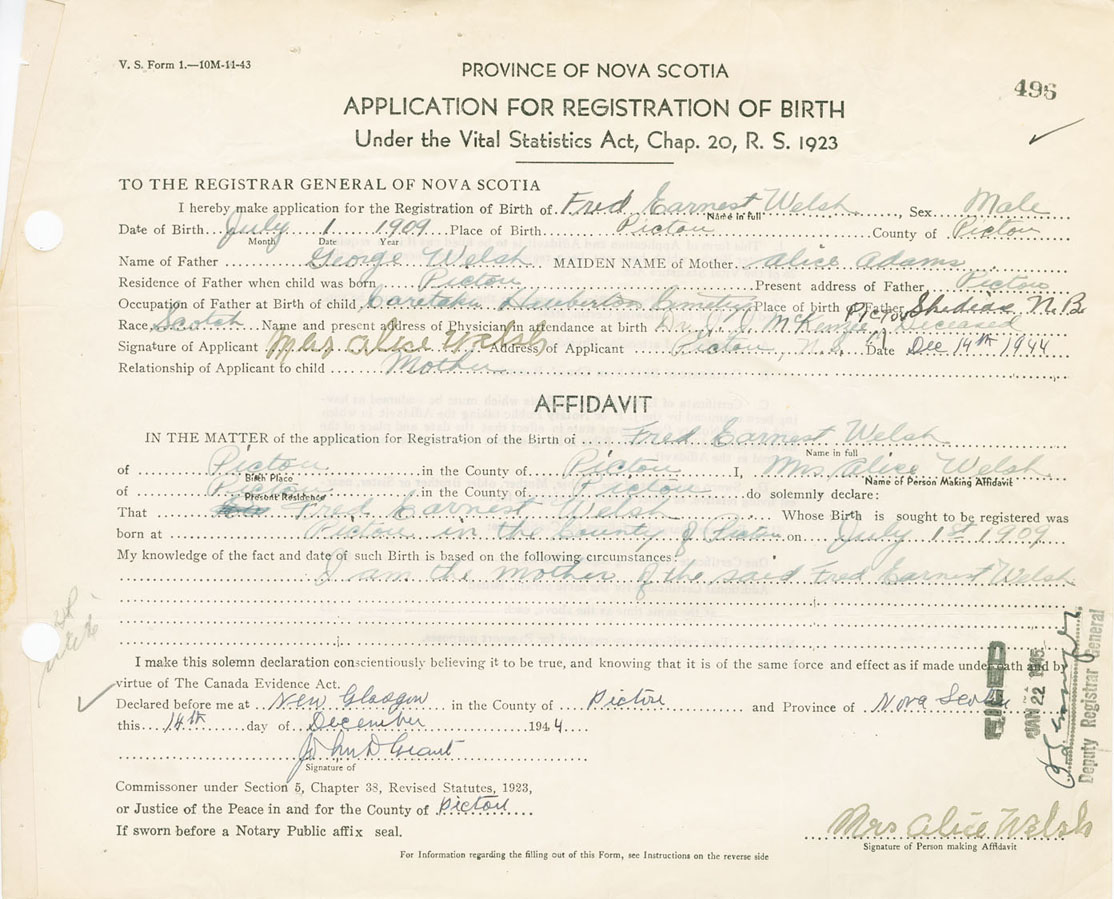 V. S. Form 1.—10M-11-43
PROVINCE OF NOVA SCOTIA
496
APPLICATION FOR REGISTRATION OF BIRTH
Under the Vital Statistics Act, Chap. 20, R. S. 1923
TO THE REGISTRAR GENERAL OF NOVA SCOTIA
I hereby make application for the Registration of Birth of Fred Earnest Welsh, Sex Male
Name in full
Date of Birth July 1 1909 Place of Birth Pictou County of Pictou
Month Date Year
Name of Father George Welsh MAIDEN NAME of Mother Alice Adams
Residence of Father when child was born Pictou Present address of Father Pictou
Occupation of Father at Birth of child Caretaker Cemetery Place of birth of Father Shediac N.B
Race Scotch Name and present address of Physician in attendance at birth Dr. McKenzie, Pictou Deceased
Signature of Applicant Mrs Alice Welsh Address of Applicant Pictou, N.S. Date Dec 14th 1944
Relationship of Applicant to child Mother
AFFIDAVIT
IN THE MATTER of the application for Registration of the Birth of Fred Earnest Welsh
Name in full
of Pictou in the County of Pictou I, Mrs Alice Welsh
Birth Place Name of Person Making Affidavit
of Pictou in the County of Pictou do solemnly declare:
Present Residence
That Fred Earnest Welsh Whose Birth is sought to be registered was
born at Pictou in the County of Pictou on July 1st 1909
My knowledge of the fact and date of such Birth is based on the following circumstances:
I am the mother of the said Fred Earnest Welsh
I make this solemn declaration conscientiously believing it to be true, and knowing that it is of the same force and effect as if made under oath and by
virtue of The Canada Evidence Act.
Declared before me at New Glasgow in the County of Pictou and Province of Nova Scotia
this 14th day of December 1944
John D Grant
Signature of
Commissoner under Section 5, Chapter 38, Revised Statutes, 1923,
or Justice of the Peace in and for the County of Pictou
If sworn before a Notary Public affix seal.
FILED
JAN 22 1945
Deputy Registrar General
Mrs Alice Welsh
Signature of Person making Affidavit
For Information regarding the filling out of this Form, see Instructions on the reverse side